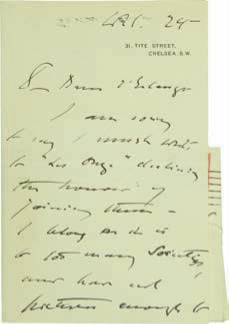 Oct. 24
31, TITE STREET,
CHELSEA. S.W.
Dear d'Erlanger
I am sorry
to say I must write
to "Les Onze" declining
the honour of
joining them -
I belong as it is
to too many Societies,
and have not
pictures enough to